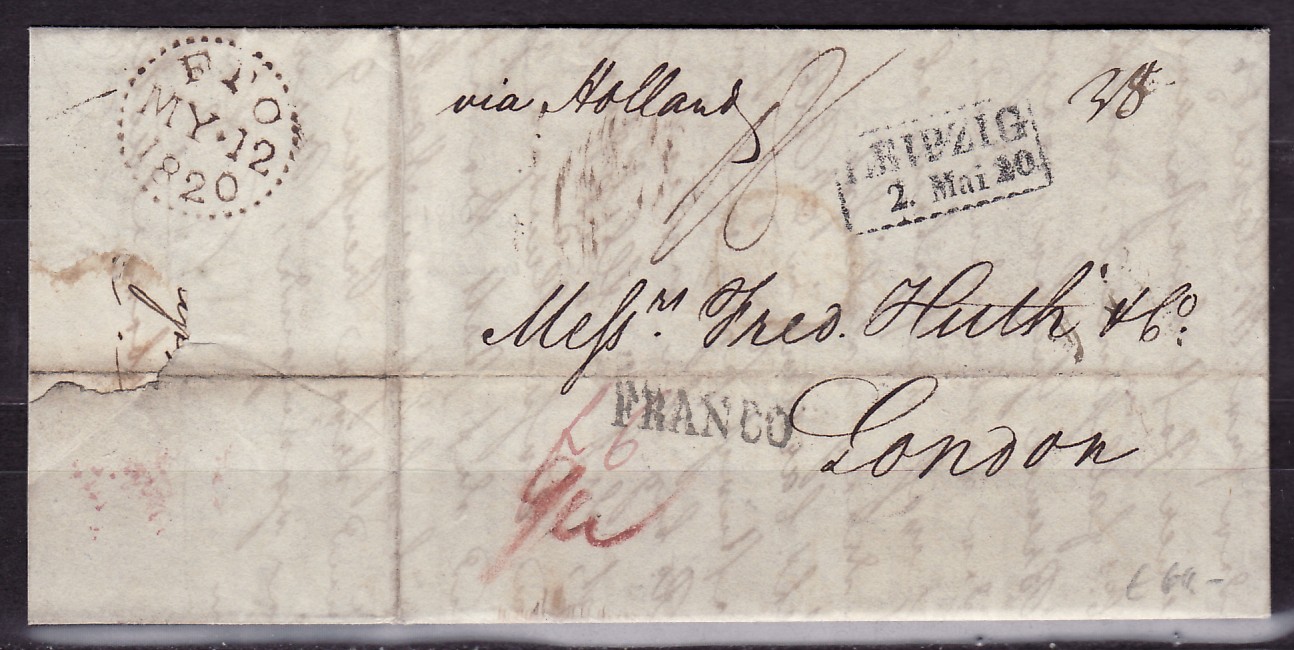 FPO
MY·12
1820
via Holland
38
LEIPZIG
2. Mai 20.
Messrs. Fred. Huth & Co.
FRANCO
London